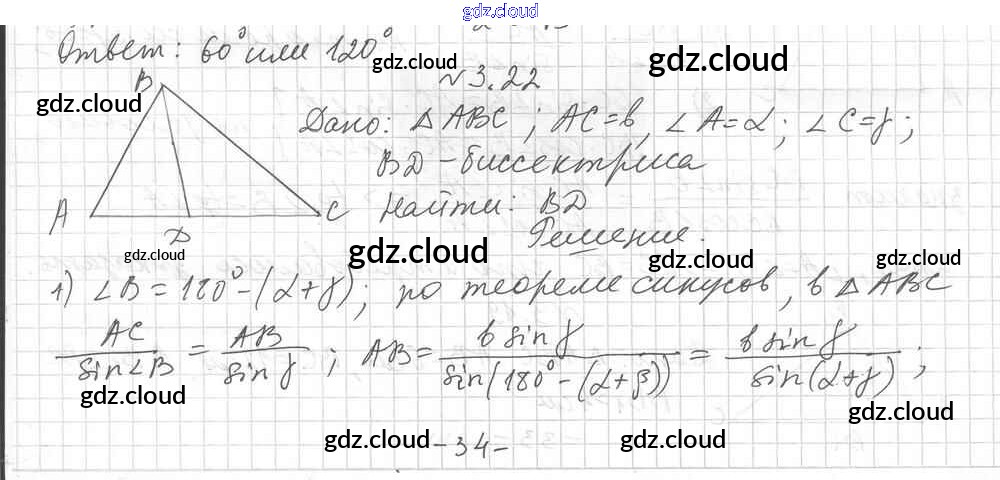 gdz.cloud
Ответ: 60° или 120°
gdz.cloud
gdz.cloud
№ 3.22
B
gdz.cloud
Дано: △ ABC ; AC=b, ∠A=α ; ∠C=γ ;
gdz.cloud
BD - биссектриса
A
C
Найти: BD
D
Решение.
gdz.cloud
gdz.cloud
gdz.cloud
1) ∠B = 180° - (α+γ); по теореме синусов, в △ ABC
AC/sin∠B = AB/sin γ ; AB = b sin γ/sin(180° - (α+β)) = b sin γ/sin(α+γ) ;
gdz.cloud
gdz.cloud
gdz.cloud
gdz.cloud
- 34 -
gdz.cloud
gdz.cloud